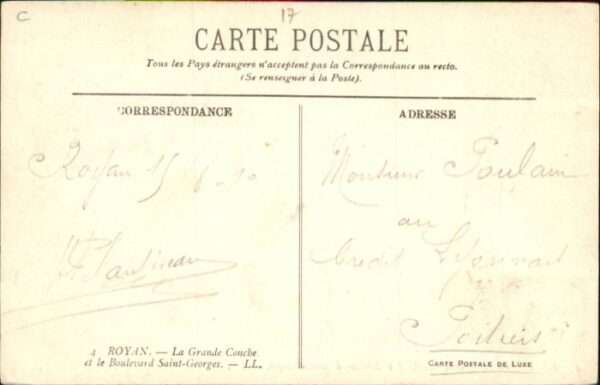 C
17
CARTE POSTALE
Tous les Pays étrangers n'acceptent pas la Correspondance au recto.
(Se renseigner à la Poste).
CORRESPONDANCE
ADRESSE
Royan 15
Monsieur Poulain
au
Credit Lyonnais
Poitiers
4 ROYAN. — La Grande Conche
et le Boulevard Saint-Georges. — LL.
CARTE POSTALE DE LUXE